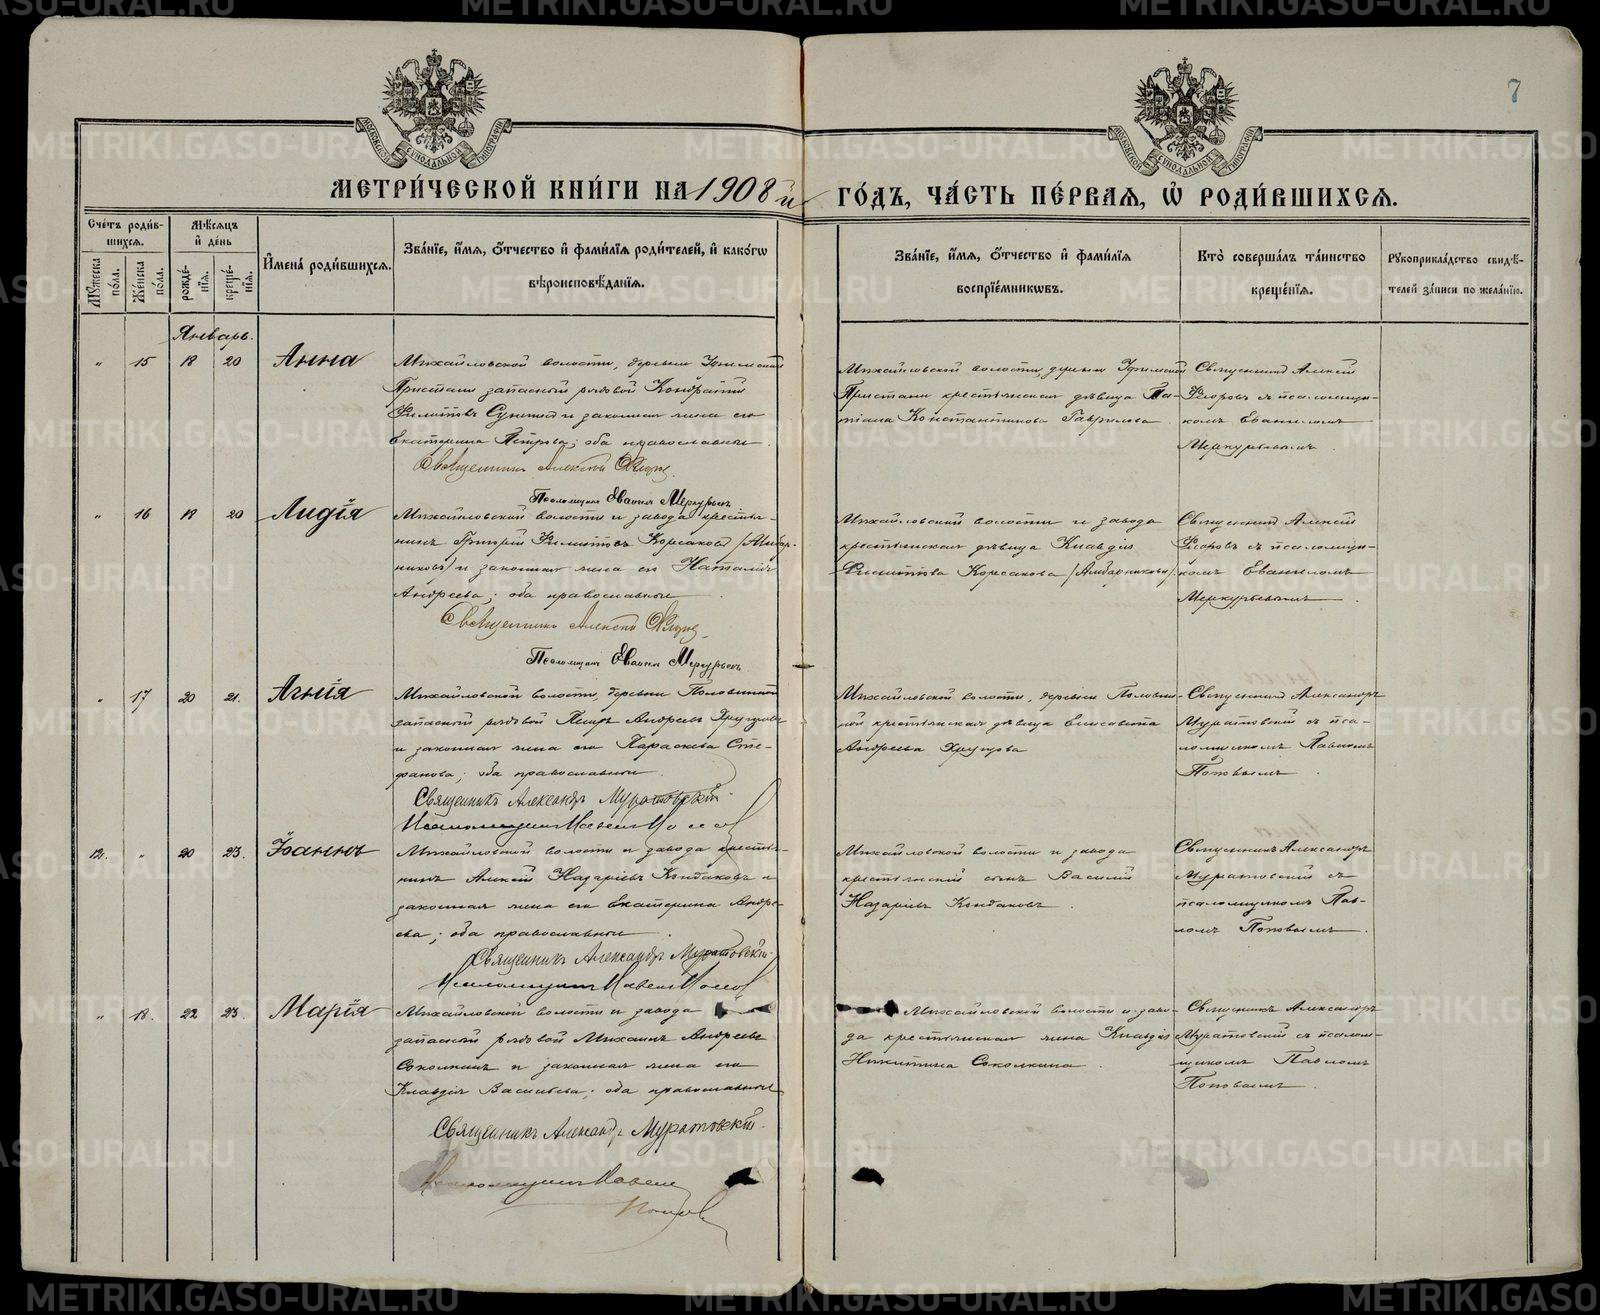 7
МОСКОВСКОЙ СѴНОДАЛЬНОЙ ТИПОГРАФІИ
МОСКОВСКОЙ СѴНОДАЛЬНОЙ ТИПОГРАФІИ
МЕТРИ́ЧЕСКОЙ КНИ́ГИ НА 1908й ГО́ДЪ, ЧА́СТЬ ПЕ́РВАЯ, Ѡ РОДИ́ВШИХСЯ.
Сче́тъ роди́вшихся.
Мꙋ́жеска по́ла.
Же́нска по́ла.
Мѣ́сяцъ и де́нь
рожде́нїя.
креще́нїя.
И҆мена̀ роди́вшихся.
Зва́нїе, и҆́мя, ѻ҆́тчество и҆ фами́лїя роди́телей, и҆ како́гѡ
вѣроисповѣ́данїя.
Зва́нїе, и҆́мя, ѻ҆́тчество и҆ фами́лїя
воспрїе́мникѡвъ.
Кто̀ соверша́лъ та́инство
креще́нїя.
Рꙋкоприкла́дство свидѣ́-
телей за́писи по жела́нїю.
Январь.
" 15 18 20 Анна
Михайловской волости, деревни Уфимской
Пристани запасный рядовой Кондратій
Филипповъ и законная жена его
Екатерина Петрова; оба православные.
Священникъ Алексѣй Флоровъ
Псаломщикъ Евангелъ Меркурьевъ
Михайловской волости, деревни Уфимской
Пристани крестьянская дѣвица Та-
тіана Константинова Гаврилова.
Священникъ Алексѣй
Флоровъ съ псаломщи-
комъ Евангеломъ
Меркурьевымъ
" 16 18 20 Лидія
Михайловской волости и завода крестья-
нинъ Григорій Филипповъ Корсаковъ (Амбар-
никовъ) и законная жена его Наталія
Андреева; оба православные.
Священникъ Алексѣй Флоровъ
Псаломщикъ Евангелъ Меркурьевъ
Михайловской волости и завода
крестьянская дѣвица Клавдія
Филиппова Корсакова (Амбарникова).
Священникъ Алексѣй
Флоровъ съ псаломщи-
комъ Евангеломъ
Меркурьевымъ.
" 17 20 21. Агнія
Михайловской волости, деревни Половинной
запасный рядовой Петръ Андреевъ Хрущовъ
и законная жена его Параскева Сте-
фанова; оба православные.
Священникъ Александръ Муратовскій.
Псаломщикъ Павелъ Поповъ
Михайловской волости, деревни Половин-
ной крестьянская дѣвица Елисавета
Андреева Хрущова
Священникъ Александръ
Муратовскій съ пса-
ломщикомъ Павломъ
Поповымъ.
12. " 20 23. Іоаннъ
Михайловской волости и завода крестья-
нинъ Алексѣй Назаріевъ Кондаковъ и
законная жена его Екатерина Андре-
ева; оба православные.
Священникъ Александръ Муратовскій.
Псаломщикъ Павелъ Поповъ
Михайловской волости и завода
крестьянскій сынъ Василій
Назаріевъ Кондаковъ.
Священникъ Александръ
Муратовскій съ
псаломщикомъ Пав-
ломъ Поповымъ.
" 18. 22 23. Марія
Михайловской волости и завода
запасный рядовой Михаилъ Андреевъ
Соколкинъ и законная жена его
Клавдія Васильева; оба православные
Священникъ Александръ Муратовскій.
Псаломщикъ Павелъ
Поповъ
Михайловской волости и заво-
да крестьянская жена Клавдія
Никитина Соколкина.
Священникъ Александръ
Муратовскій съ псалом-
щикомъ Павломъ
Поповымъ.
METRIKI.GASO-URAL.RU